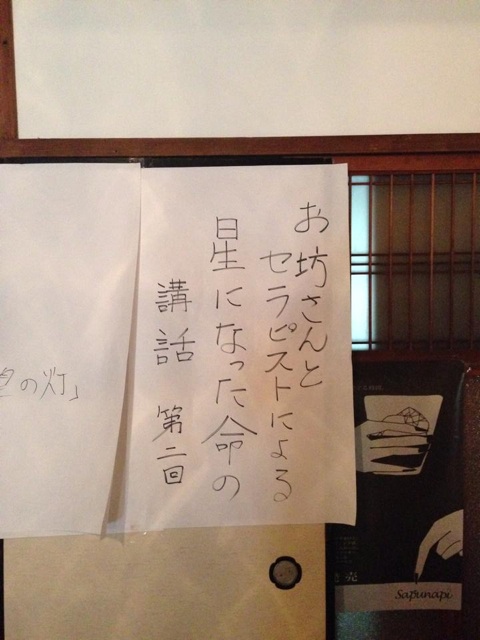 お坊さんと
セラピストによる
星になった命の
講話 第二回
の灯」
Sapunapi